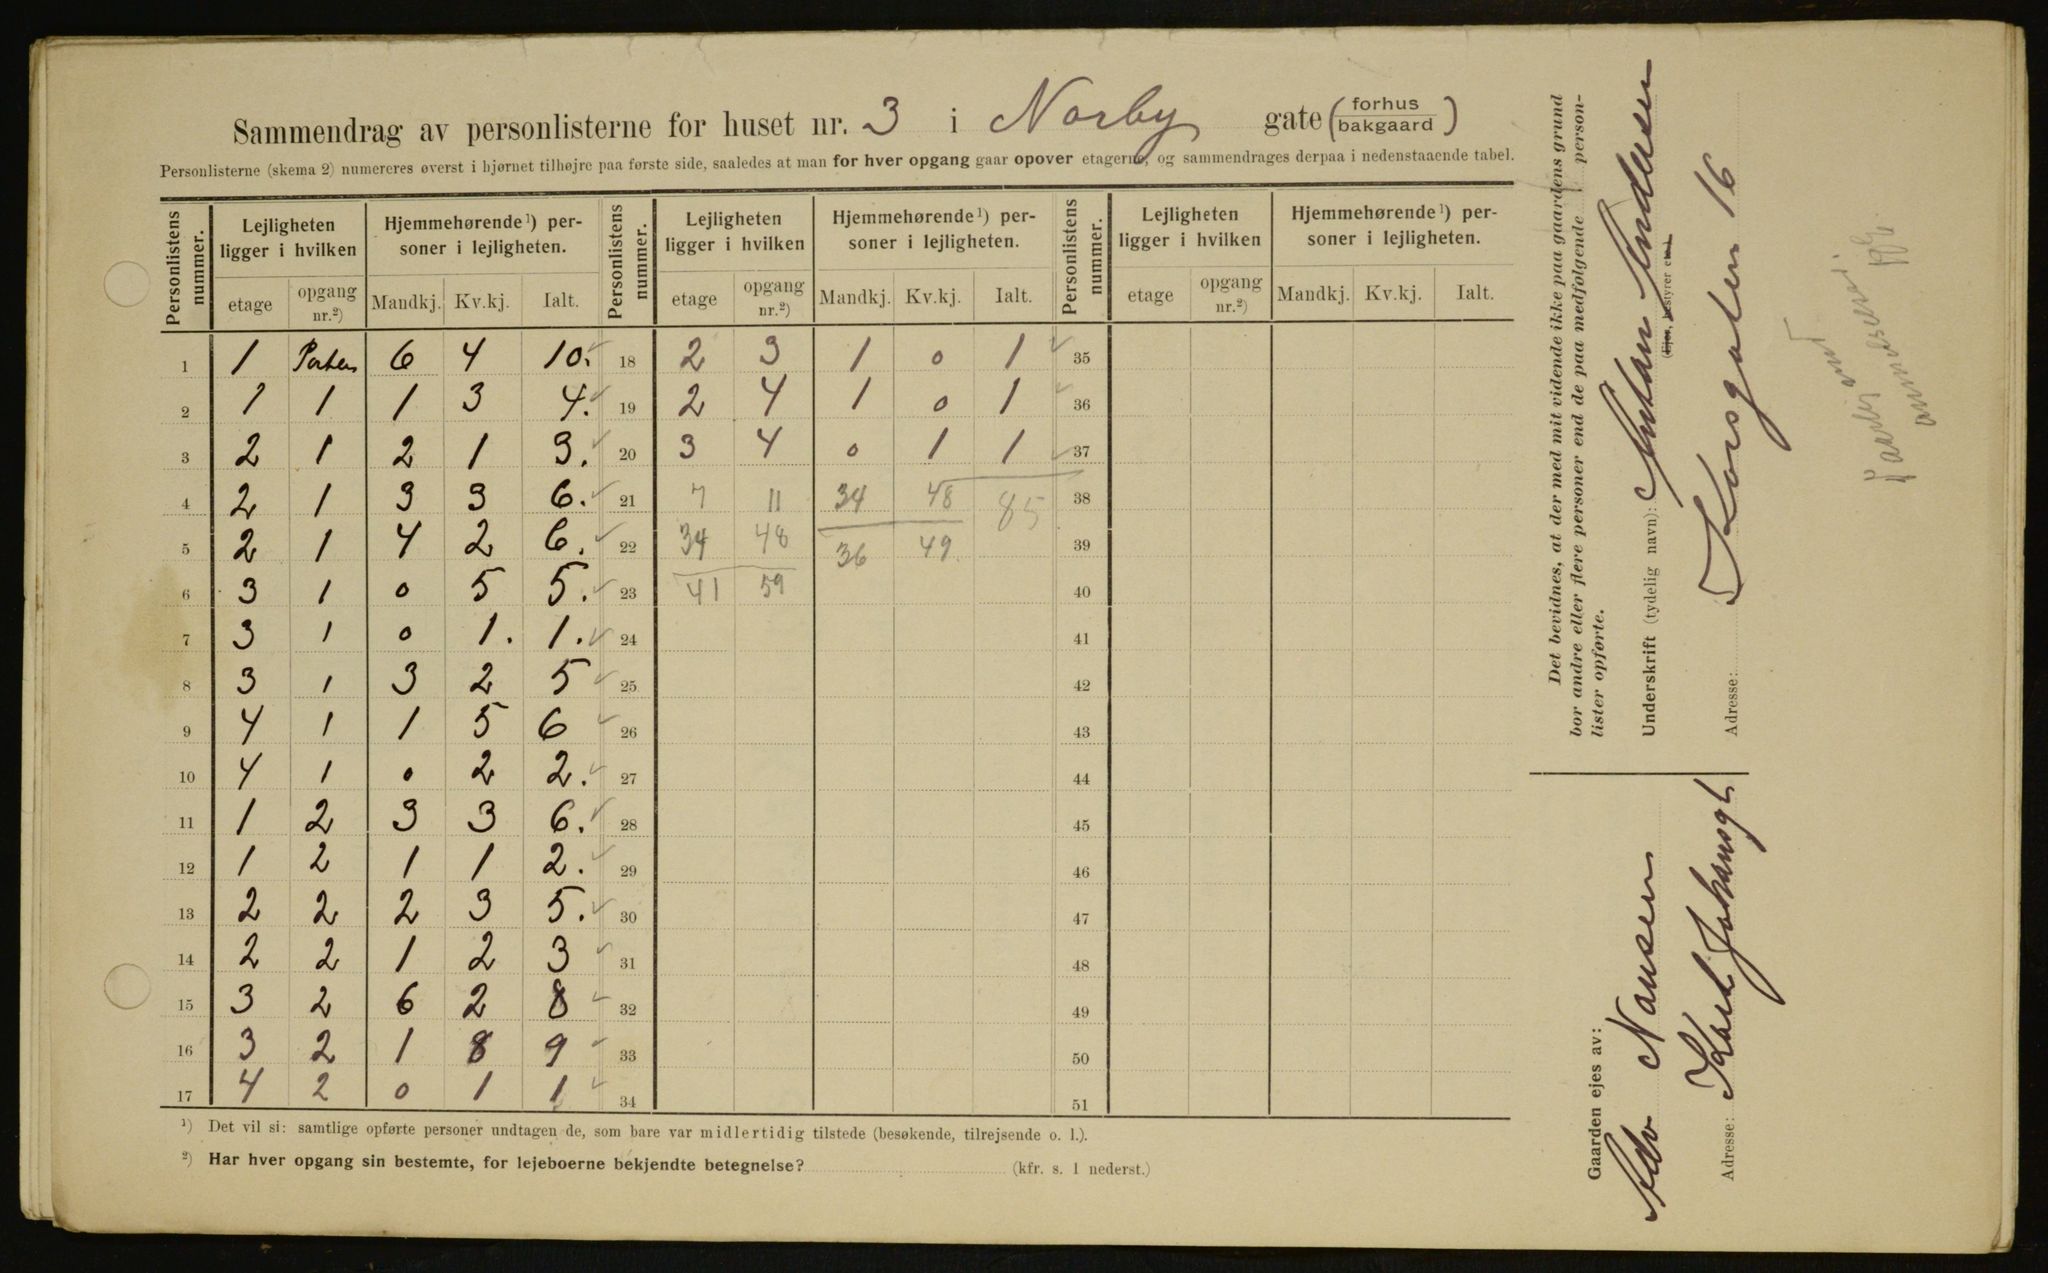 Sammendrag av personlisterne for huset nr. 3 i Norby gate (forhus / bakgaard)
Personlisterne (skema 2) numereres øverst i hjørnet tilhøjre paa første side, saaledes at man for hver opgang gaar opover etagerne, og sammendrages derpaa i nedenstaaende tabel.
Personlistens nummer. Lejligheten ligger i hvilken Hjemmehørende¹) personer i lejligheten. Personlistens nummer. Lejligheten ligger i hvilken Hjemmehørende¹) personer i lejligheten. Personlistens nummer. Lejligheten ligger i hvilken Hjemmehørende¹) personer i lejligheten.
etage opgang nr.²) Mandkj. Kv.kj. Ialt. etage opgang nr.²) Mandkj. Kv.kj. Ialt. etage opgang nr.²) Mandkj. Kv.kj. Ialt.
1 1 Porten 6 4 10. 18 2 3 1 0 1 35
2 1 1 1 3 4. 19 2 4 1 0 1 36
3 2 1 2 1 3. 20 3 4 0 1 1 37
4 2 1 3 3 6. 21 7 11 34 48 85 38
5 2 1 4 2 6. 22 34 48 36 49 39
6 3 1 0 5 5. 23 41 59 40
7 3 1 0 1. 1. 24 41
8 3 1 3 2 5 25 42
9 4 1 1 5 6 26 43
10 4 1 0 2 2. 27 44
11 1 2 3 3 6. 28 45
12 1 2 1 1 2. 29 46
13 2 2 2 3 5. 30 47
14 2 2 1 2 3 31 48
15 3 2 6 2 8 32 49
16 3 2 1 8 9 33 50
17 4 2 0 1 1 34 51
¹) Det vil si: samtlige opførte personer undtagen de, som bare var midlertidig tilstede (besøkende, tilrejsende o. l.).
²) Har hver opgang sin bestemte, for lejeboerne bekjendte betegnelse? (kfr. s. 1 nederst.)
Det bevidnes, at der med mit vidende ikke paa gaardens grund
bor andre eller flere personer end de paa medfølgende person-
lister opførte.
Underskrift (tydelig navn): Anthan Andersen
(Ejer, bestyrer etc.)
Adresse: Korsgaten 16
Gaarden ejes av:
Adv Nansen
Adresse: Karl Johansgt